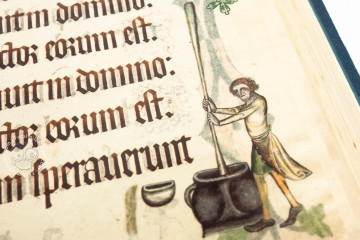 in domino.
ctor eorum est.
unt in domino:
ctor eorum est.
m speraverunt